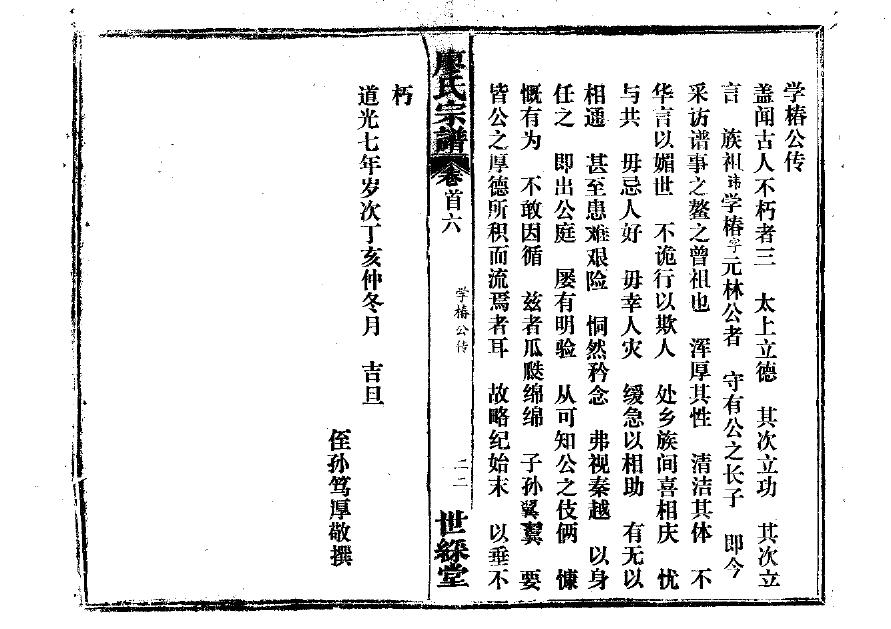 学椿公传
盖闻古人不朽者三 太上立德 其次立功 其次立
言 族祖讳学椿字元林公者 守有公之长子 即今
采访谱事之鳌之曾祖也 浑厚其性 清洁其体 不
华言以媚世 不诡行以欺人 处乡族间喜相庆 忧
与共 毋忌人好 毋幸人灾 缓急以相助 有无以
相通 甚至患难艰险 恫然矜念 弗视秦越 以身
任之 即出公庭 屡有明验 从可知公之伎俩 慷
慨有为 不敢因循 兹者瓜瓞绵绵 子孙翼翼 要
皆公之厚德所积而流焉者耳 故略纪始末 以垂不
廖氏宗譜 卷首六 学椿公传 二二 世綵堂
朽
道光七年岁次丁亥仲冬月 吉旦
侄孙笃厚敬撰